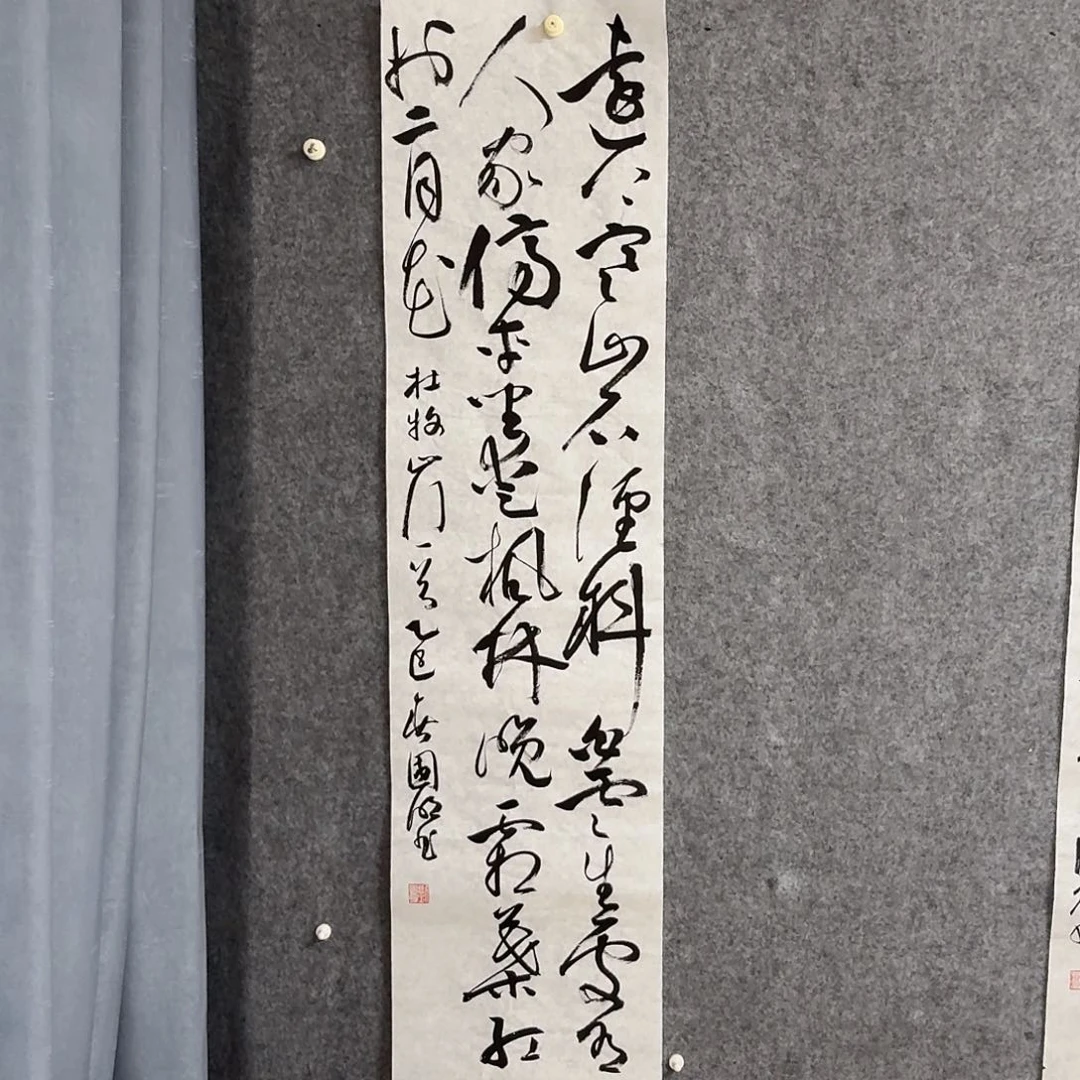 遠上寒山石徑斜白雲生處有
人家停車坐愛楓林晚霜葉紅
於二月花 杜牧山行一首乙巳春國书